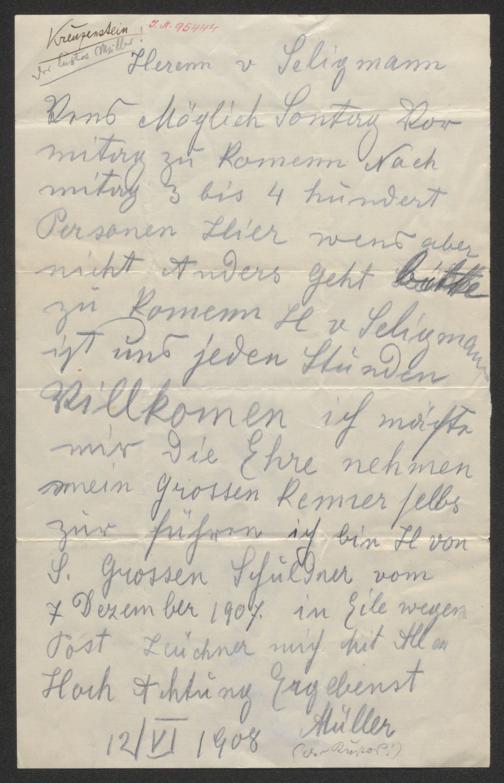 Kreuzenstein!
I. N. 95444
Der Kustos Müller
Herenn v Seligmann
Wens Möglich Sontag Vor
mitag zu komenn Nach
mitag 3 bis 4 hundert
Personen Hier wens aber
nicht Anders geht bitte
zu komenn H v Seligmann
ist uns jeden Stunden
Willkomen ich möchte
mir Die Ehre nehmen
mein Grossen Kenner selbs
zur führen ich bin H von
S. Grossen Schuldner vom
7 Dezember 1907. in Eile wegen
Post Zeichner mich Mit Aller
Hoch Achtung Ergebenst
Müller
12/VI 1908